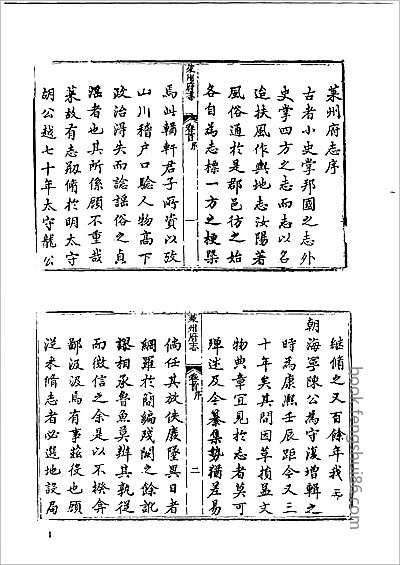 萊州府志序
古者小史掌邦國之志外
史掌四方之志而志以名
迨扶風作輿地志汝陽著
風俗通於是郡邑彷之始
各自為志標一方之梗槩
萊州府志
卷首序
一
焉此輶軒君子所資以攷
山川稽户口驗人物高下
政治得失而諗謡俗之貞
淫者也其所係顧不重哉
萊故有志剏脩於明太守
胡公越七十年太守龍公
繼脩之又百餘年我
朝海寧陳公為守復增輯之
時為康熈壬辰距今又三
十年矣其間因革損益文
物典章宜見於志者莫可
殫述及今纂集勢猶差易
萊州府志
卷首序
二
倘任其放佚廢墜異日者
網羅於簡編殘闕之餘訛
謬相承魯魚莫辨其孰從
而徵信之余是以不揆弇
鄙汲汲焉有事兹役也顧
從来脩志者必選地設局
1
book.fengshui86.com